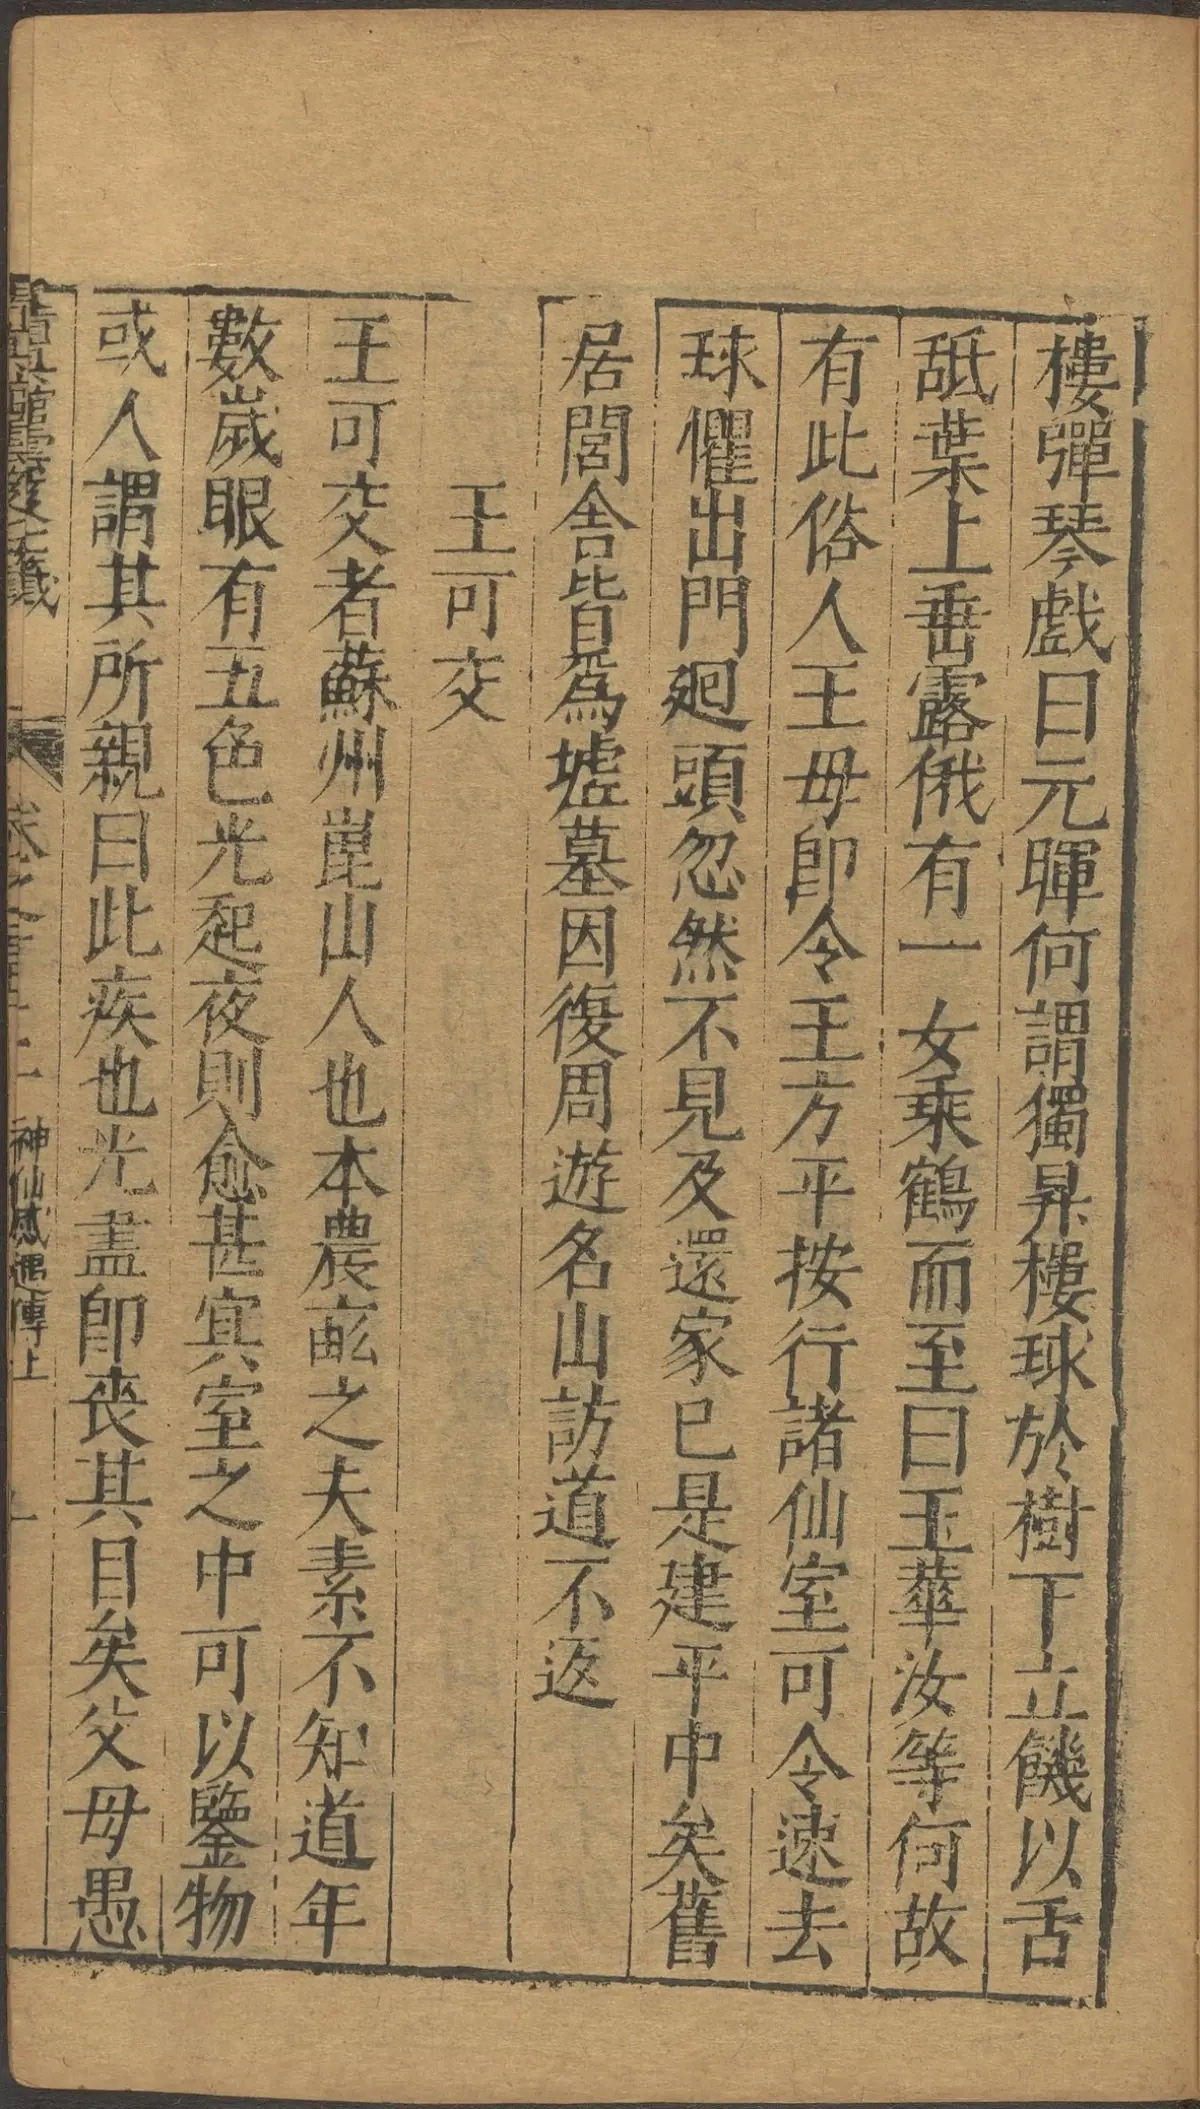 樓彈琴戲曰元暉何謂獨昇樓球於樹下立饑以舌
舐葉上垂露俄有一女乘鶴而至曰玉華汝等何故
有此俗人王母卽令王方平按行諸仙室可令速去
球懼出門廻頭忽然不見及還家已是建平中矣舊
居閭舍皆爲墟墓因復周遊名山訪道不返
王可交
王可交者蘇州崑山人也本農畝之夫素不知道年
數歲眼有五色光起夜則愈甚冥室之中可以鑒物
或人謂其所親曰此疾也光盡卽喪其目矣父母愚
清真館雲笈七籤
卷之一百十二
神仙感遇傳上